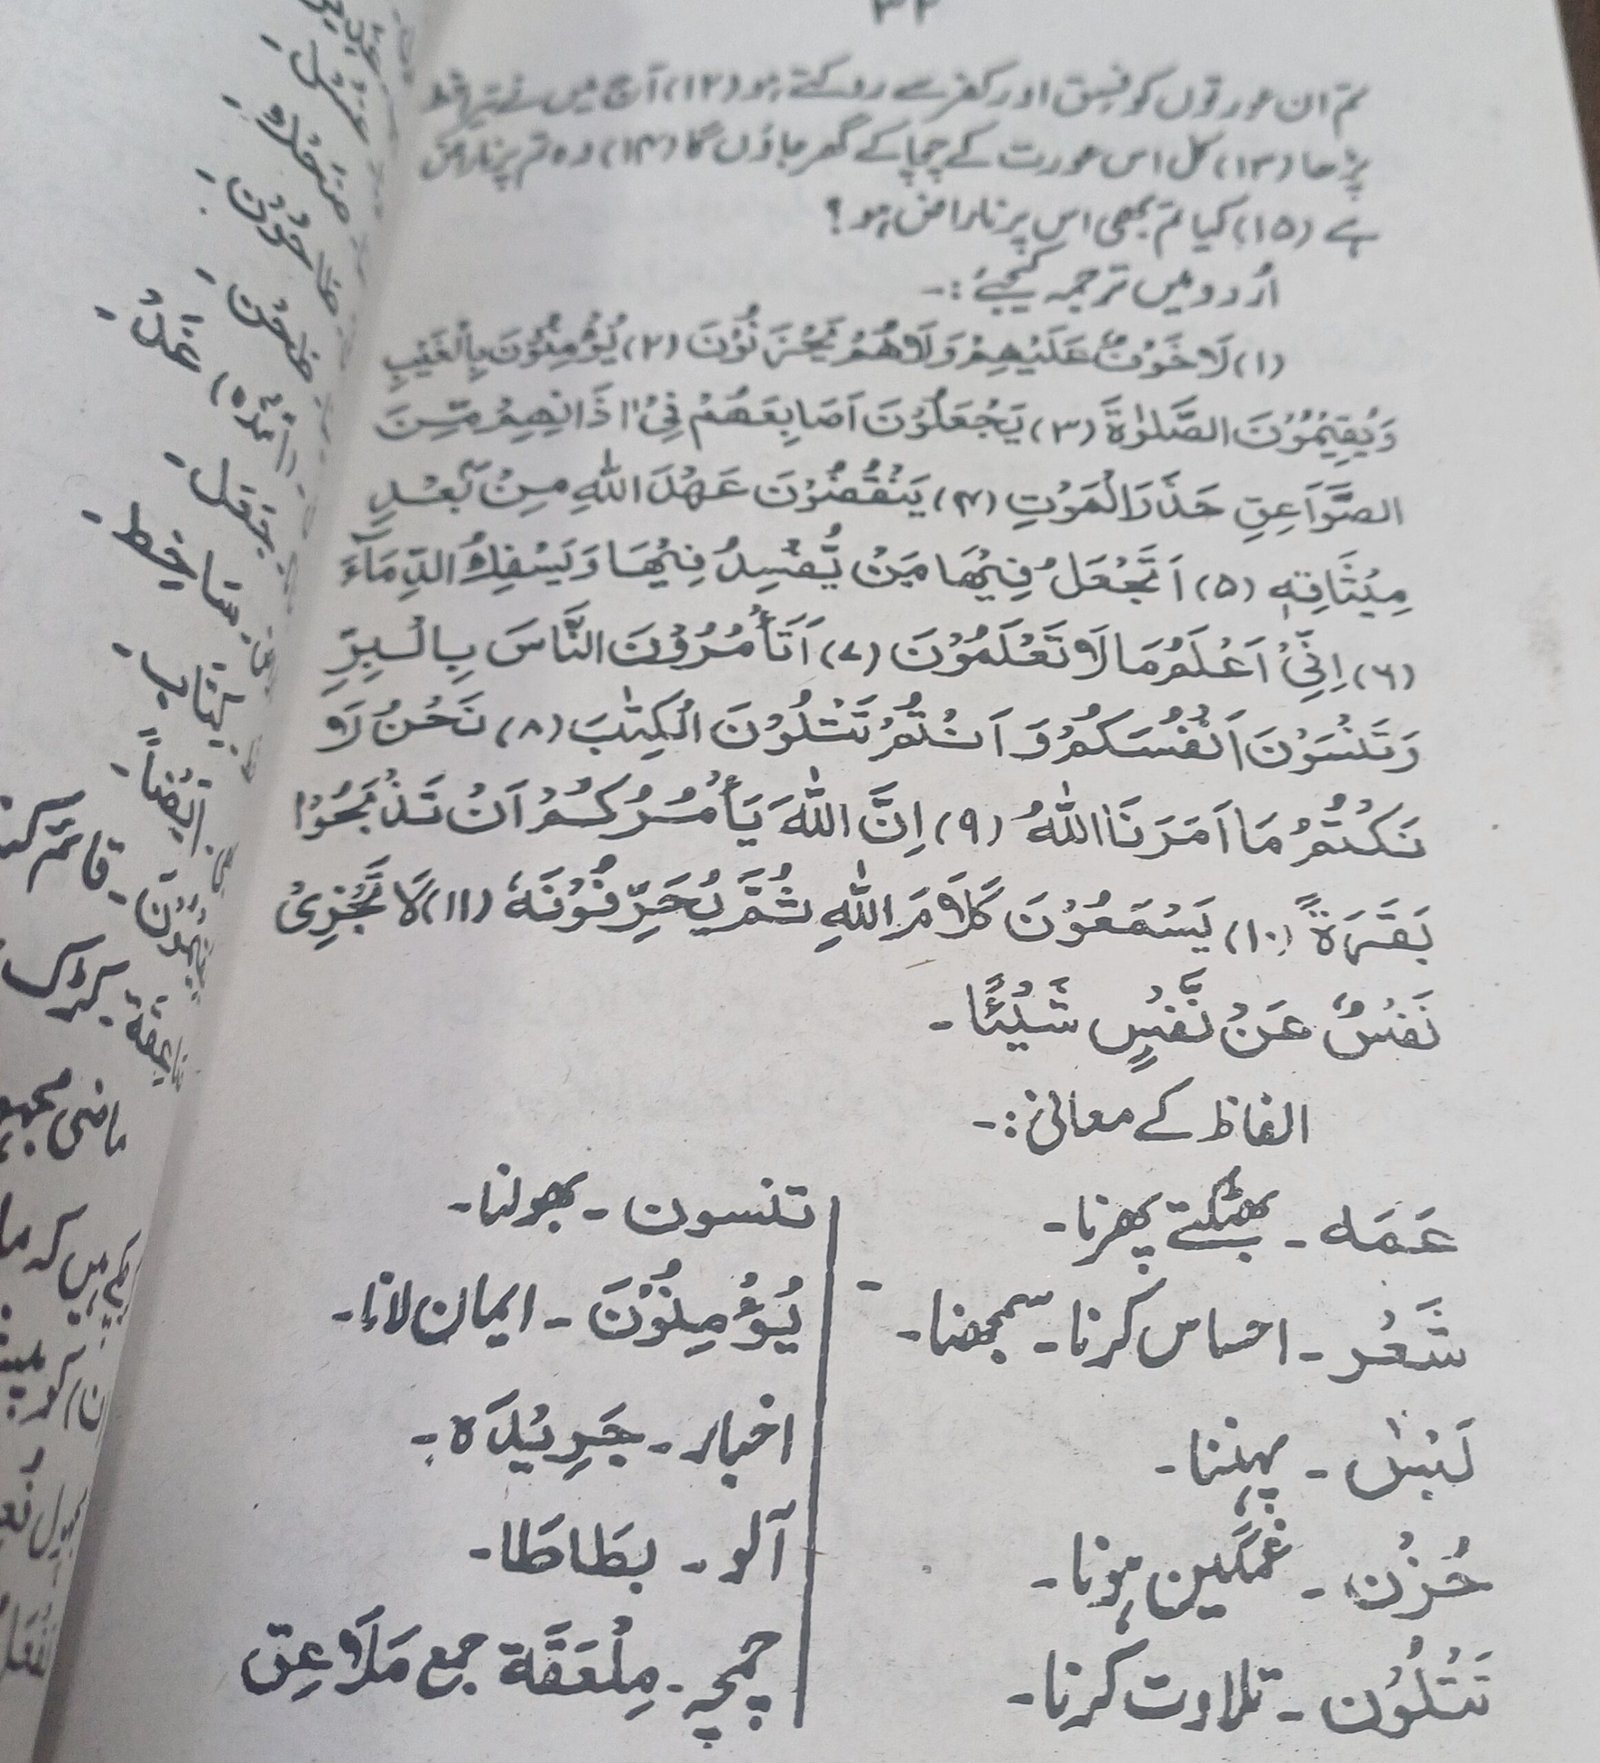 ۳۲
تم ان عورتوں کو فسق اور کفر سے روکتے ہو (۱۲) آج میں نے تیرا خط
پڑھا (۱۳) کل اس عورت کے چچا کے گھر جاؤں گا (۱۴) وہ تم پر ناراض
ہے (۱۵) کیا تم بھی اس پر ناراض ہو؟
اُردو میں ترجمہ کیجئے :-
(۱) لَا خَوْفٌ عَلَيْهِمْ وَلَا هُمْ يَحْزَنُوْنَ (۲) يُؤْمِنُوْنَ بِالْغَيْبِ
وَيُقِيْمُوْنَ الصَّلٰوةَ (۳) يَجْعَلُوْنَ اَصَابِعَهُمْ فِيْ اٰذَانِهِمْ مِّنَ
الصَّوَاعِقِ حَذَرَ الْمَوْتِ (۴) يَنْقُضُوْنَ عَهْدَ اللّٰهِ مِنْ بَعْدِ
مِيْثَاقِهٖ (۵) اَتَجْعَلُ فِيْهَا مَنْ يُّفْسِدُ فِيْهَا وَيَسْفِكُ الدِّمَآءَ
(۶) اِنِّيْ اَعْلَمُ مَا لَا تَعْلَمُوْنَ (۷) اَتَأْمُرُوْنَ النَّاسَ بِالْبِرِّ
وَتَنْسَوْنَ اَنْفُسَكُمْ وَاَنْتُمْ تَتْلُوْنَ الْكِتٰبَ (۸) نَحْنُ لَا
نَكْتُمُ مَا اَمَرَنَا اللّٰهُ (۹) اِنَّ اللّٰهَ يَأْمُرُكُمْ اَنْ تَذْبَحُوْا
بَقَرَةً (۱۰) يَسْمَعُوْنَ كَلَامَ اللّٰهِ ثُمَّ يُحَرِّفُوْنَهٗ (۱۱) لَا تَجْزِيْ
نَفْسٌ عَنْ نَّفْسٍ شَيْئًا -
الفاظ کے معانی :-
عَمَه - بھٹکتے پھرنا -
شَعُر - احساس کرنا - سمجھنا -
لَبْسٌ - پہننا -
حُزْن - غمگین ہونا -
تَتْلُوْن - تلاوت کرنا -
تنسون - بھولنا -
يُؤْمِنُوْنَ - ایمان لانا -
اخبار - جَرِيْدَه -
آلو - بطَاطَا -
چمچہ - مِلْعَقَة جمع مَلَاعِق